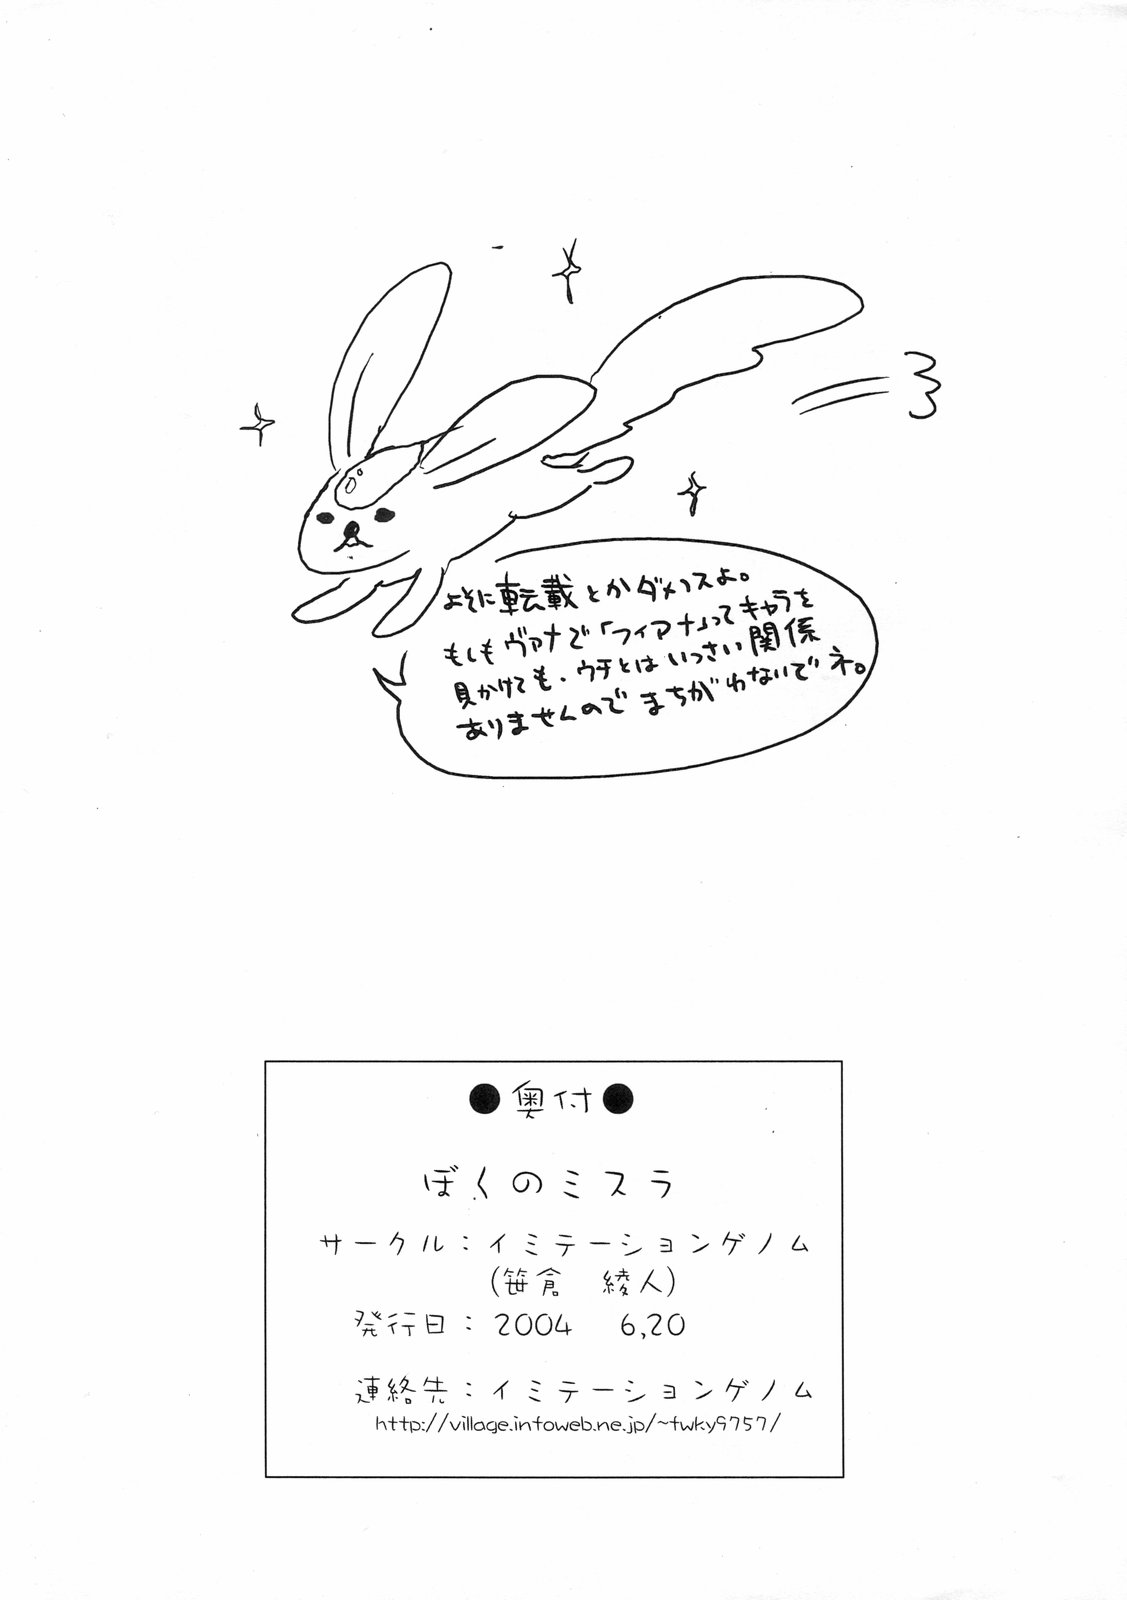 よそに転載とかダメっスよ。
もしもヴァナで「フィアナ」ってキャラを
見かけても、ウチとはいっさい関係
ありませんのでまちがわないでネ。
●奥付●
ぼくのミスラ
サークル：イミテーションゲノム
(笹倉　綾人)
発行日：2004　6,20
連絡先：イミテーションゲノム
http://village.infoweb.ne.jp/~twky9757/